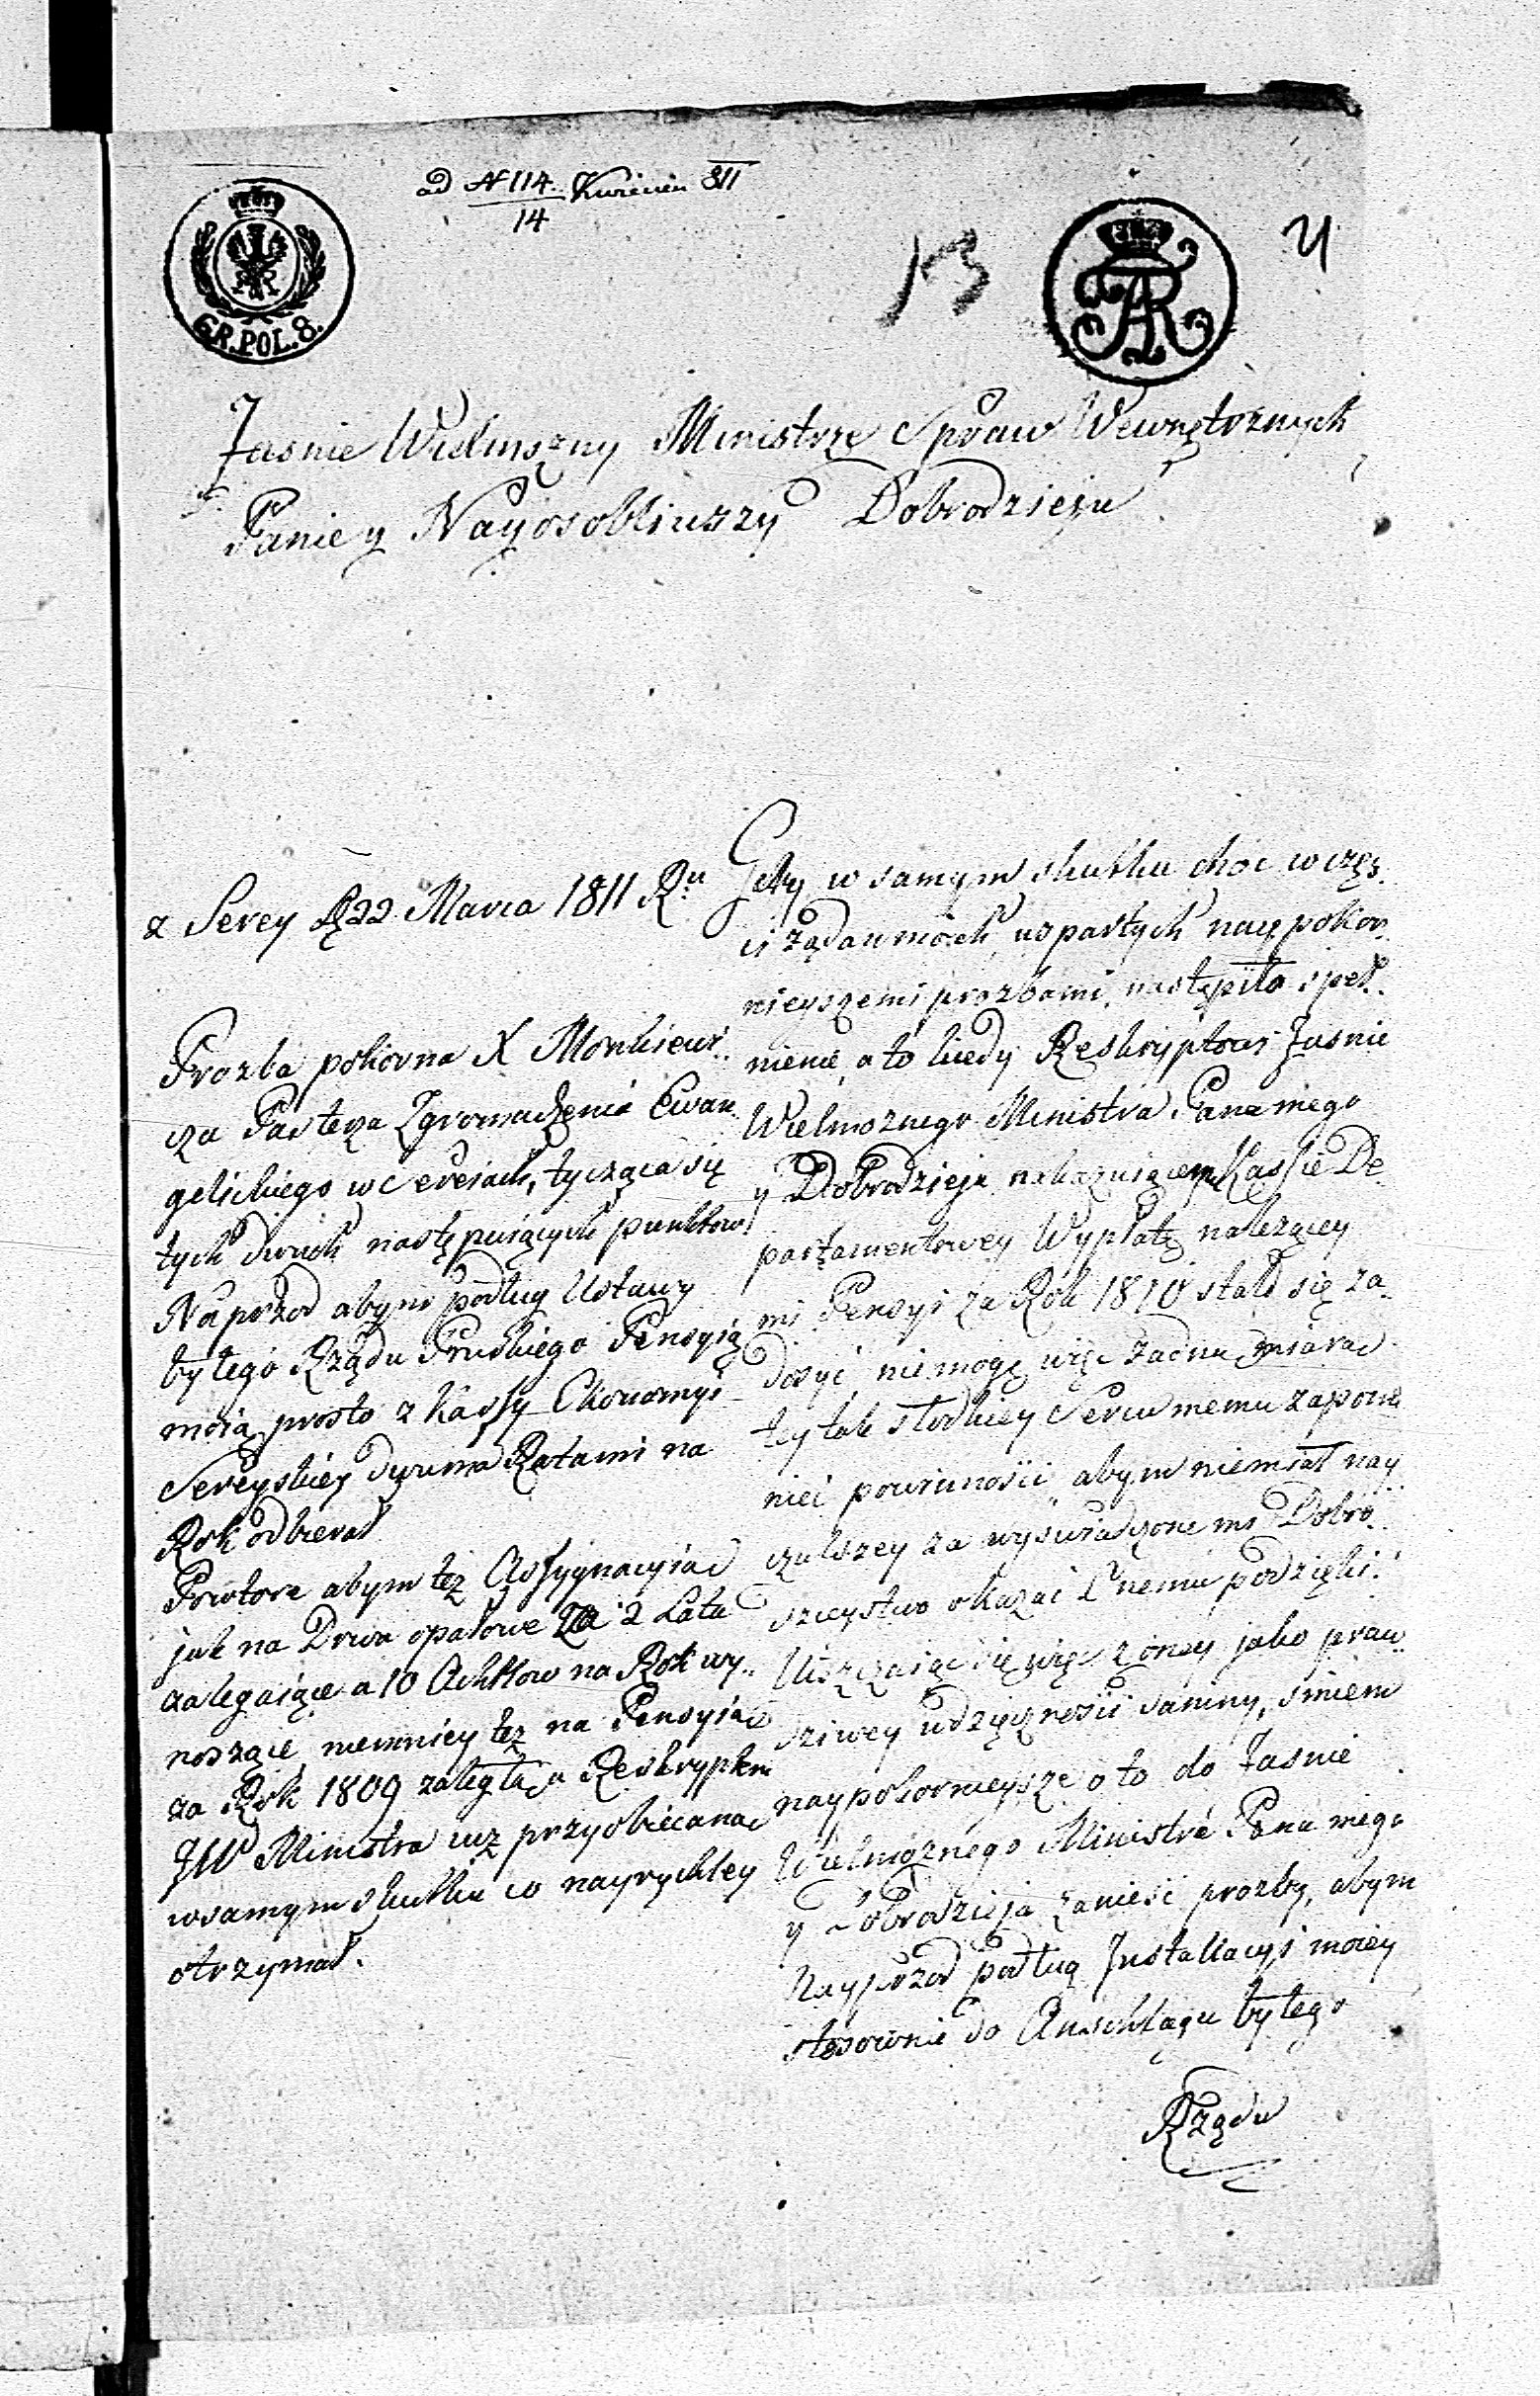 ad N 114. Kwiecien 811
14
GR.POL.8.
13
AR
Jasnie Wielmozny Ministrze Spraw Wewnętrznych
Panie y Nayosobliwszy Dobrodzieju
z Serey d 22 Marca 1811 Ru
Prozba pokorna X Monkiewi..
cza Pasteza Zgromadzenia Ewan
gelickiego w Sereiach, tycząca się
tych dwuch następuiących punktow
Naprzod abym podług Ustawy
byłego Rządu Pruskiego Pensyią
moią prosto z Kassy Ekonomyi
Sereyskiey dwuma Ratami na
Rok odbierał
Powtore abym tez Assygnacyia
jak na Drwa opałowe za 2 Lata
zalegaiące a 10 Achtlow na Rok wy..
noszące, niemniey tez na Pensyia
za Rok 1809 zaległą, a Reskryptem
JW Ministra iuz przyobiecana
wsamym skutku co nayrychley
otrzymał.
Gdy w samym skutku choc wczęs.
ci żądan moich, wspartych naypokor
nieyszemi prozbami, nastąpiło speł..
nienie, a to kiedy Reskryptowi Jasnie
Wielmoznego Ministra Pana mego
y Dobrodzieja nakazuiącemu Kassie De
partamentowey Wypłatę nalezącey
mi Pensyi za Rok 1810 stało się za
dosyć, niemogę więc żadną miarą
tey tak słodkiey Sercu memu zapom
niec powinności, abym niemiał nay
czulszey za wyswiadczone mi Dobro
zieystwo okazać Onemu podzięki.
Uiszczaiąc się więc z oney jako praw
dziwey wdzięcznosci daniny, smiem
naypokornieysze o to do Jasnie
Wielmoznego Ministra Pana mego
y Dobrodzieja zanieść prozby, abym
Nayprzod podług Installacyi moiey
stosownie do Anschlagu byłego
Rządu